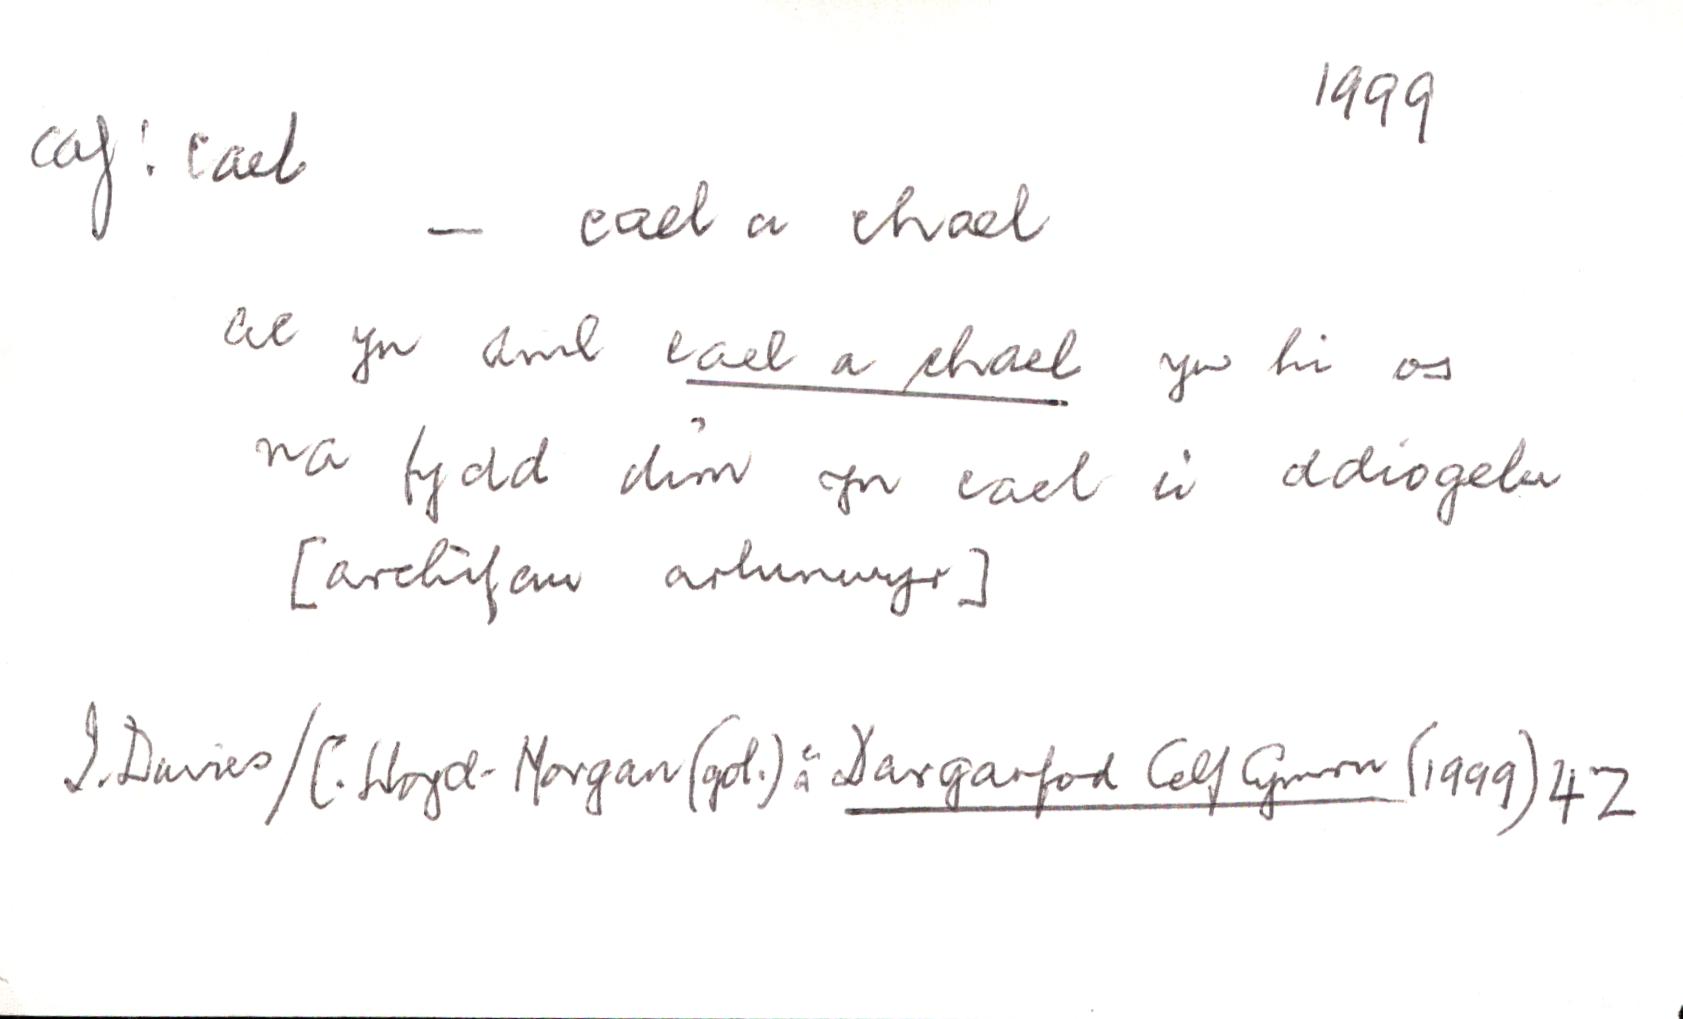 1999
caf: cael
— cael a chael
ac yn aml cael a chael yw hi os
na fydd dim yn cael ei ddiogelu
[archifau arlunwyr]
I. Davies/C. Lloyd-Morgan (gol.): Darganfod Celf Cymru (1999) 42